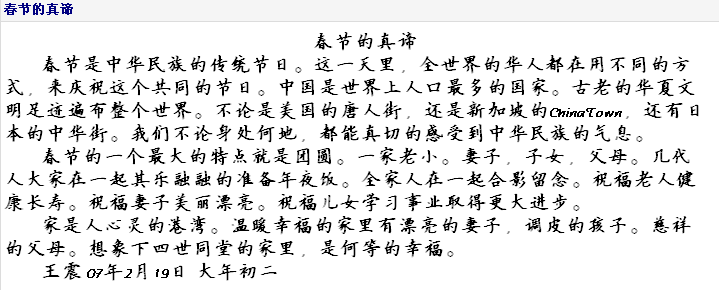 春节的真谛
春节的真谛
春节是中华民族的传统节日。这一天里，全世界的华人都在用不同的方
式，来庆祝这个共同的节日。中国是世界上人口最多的国家。古老的华夏文
明足迹遍布整个世界。不论是美国的唐人街，还是新加坡的ChinaTown，还有日
本的中华街。我们不论身处何地，都能真切的感受到中华民族的气息。
春节的一个最大的特点就是团圆。一家老小。妻子，子女，父母。几代
人大家在一起其乐融融的准备年夜饭。全家人在一起合影留念。祝福老人健
康长寿。祝福妻子美丽漂亮。祝福儿女学习事业取得更大进步。
家是人心灵的港湾。温暖幸福的家里有漂亮的妻子，调皮的孩子。慈祥
的父母。想象下四世同堂的家里，是何等的幸福。
王震 07年2月19日 大年初二